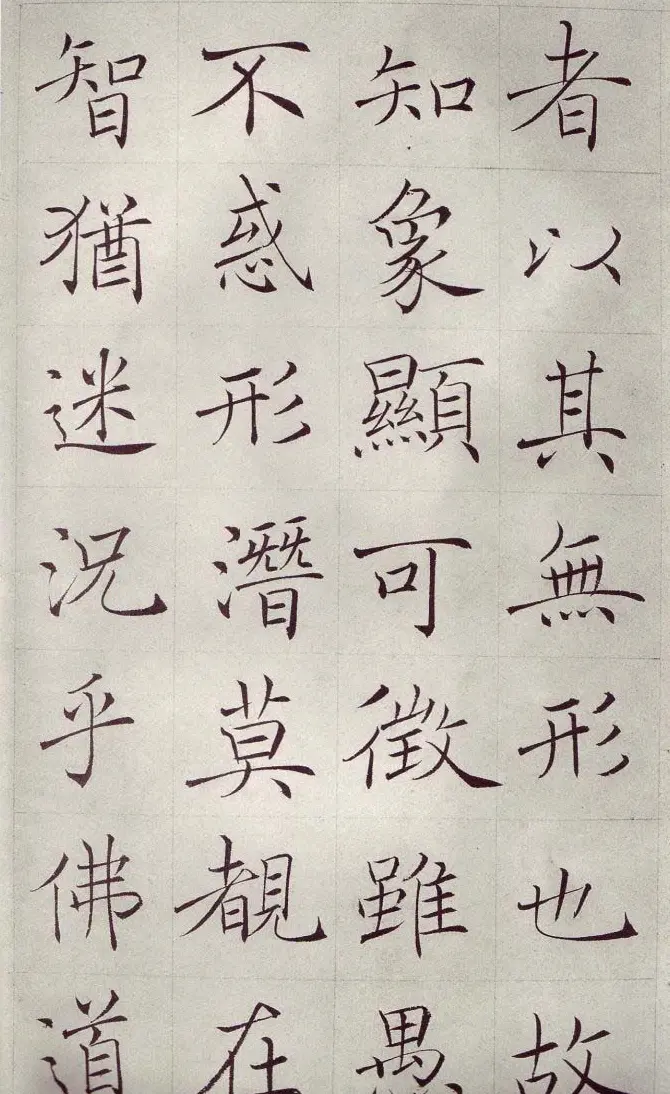 者以其無形也故
知象顯可徵雖愚
不惑形潛莫覩在
智猶迷況乎佛道